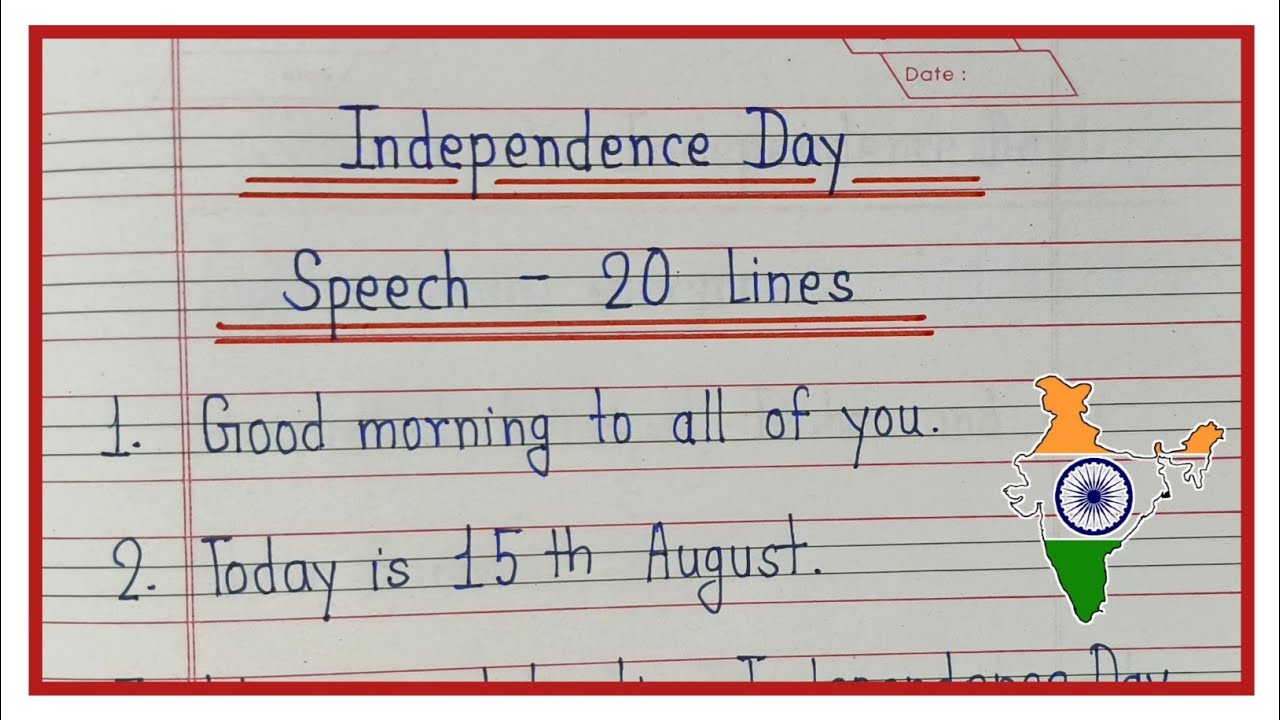 Date :
Independence Day
Speech - 20 Lines
1. Good morning to all of you.
2. Today is 15th August.
Independence Day